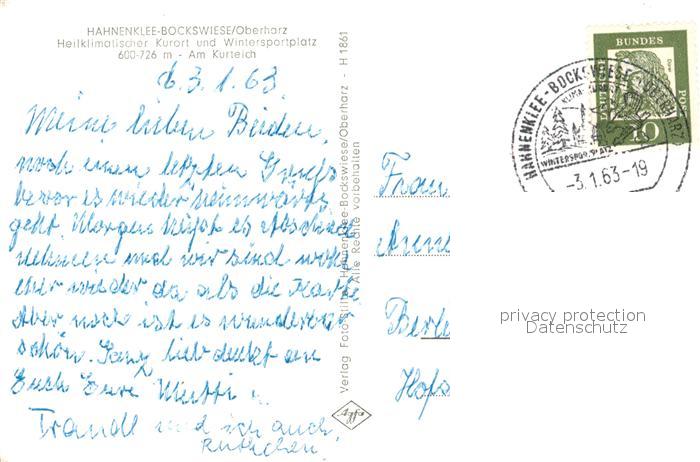 HAHNENKLEE-BOCKSWIESE/Oberharz
Heilklimatischer Kurort und Wintersportplatz
600-726 m - Am Kurteich
3.1.63.
Meine lieben Beiden,
noch einen letzten Gruß
bevor es wieder heimwärts
geht. Morgen heißt es Abschied
nehmen und wir sind wohl
eher wieder da als die Karte
Aber noch ist es wunderbar
schön. Ganz lieb denkt an
Euch Eure Mutti
Traudl und ich auch,
Verlag Foto Stille, Hahnenklee-Bockswiese/Oberharz - H 1861
Alle Rechte vorbehalten
Agfa
Frau
Berl
Hofs
DEUTSCHE BUNDESPOST
10
HAHNENKLEE-BOCKSWIESE (OBERHARZ)
WINTERSPORTPLATZ
-3.1.63-19
privacy protection
Datenschutz